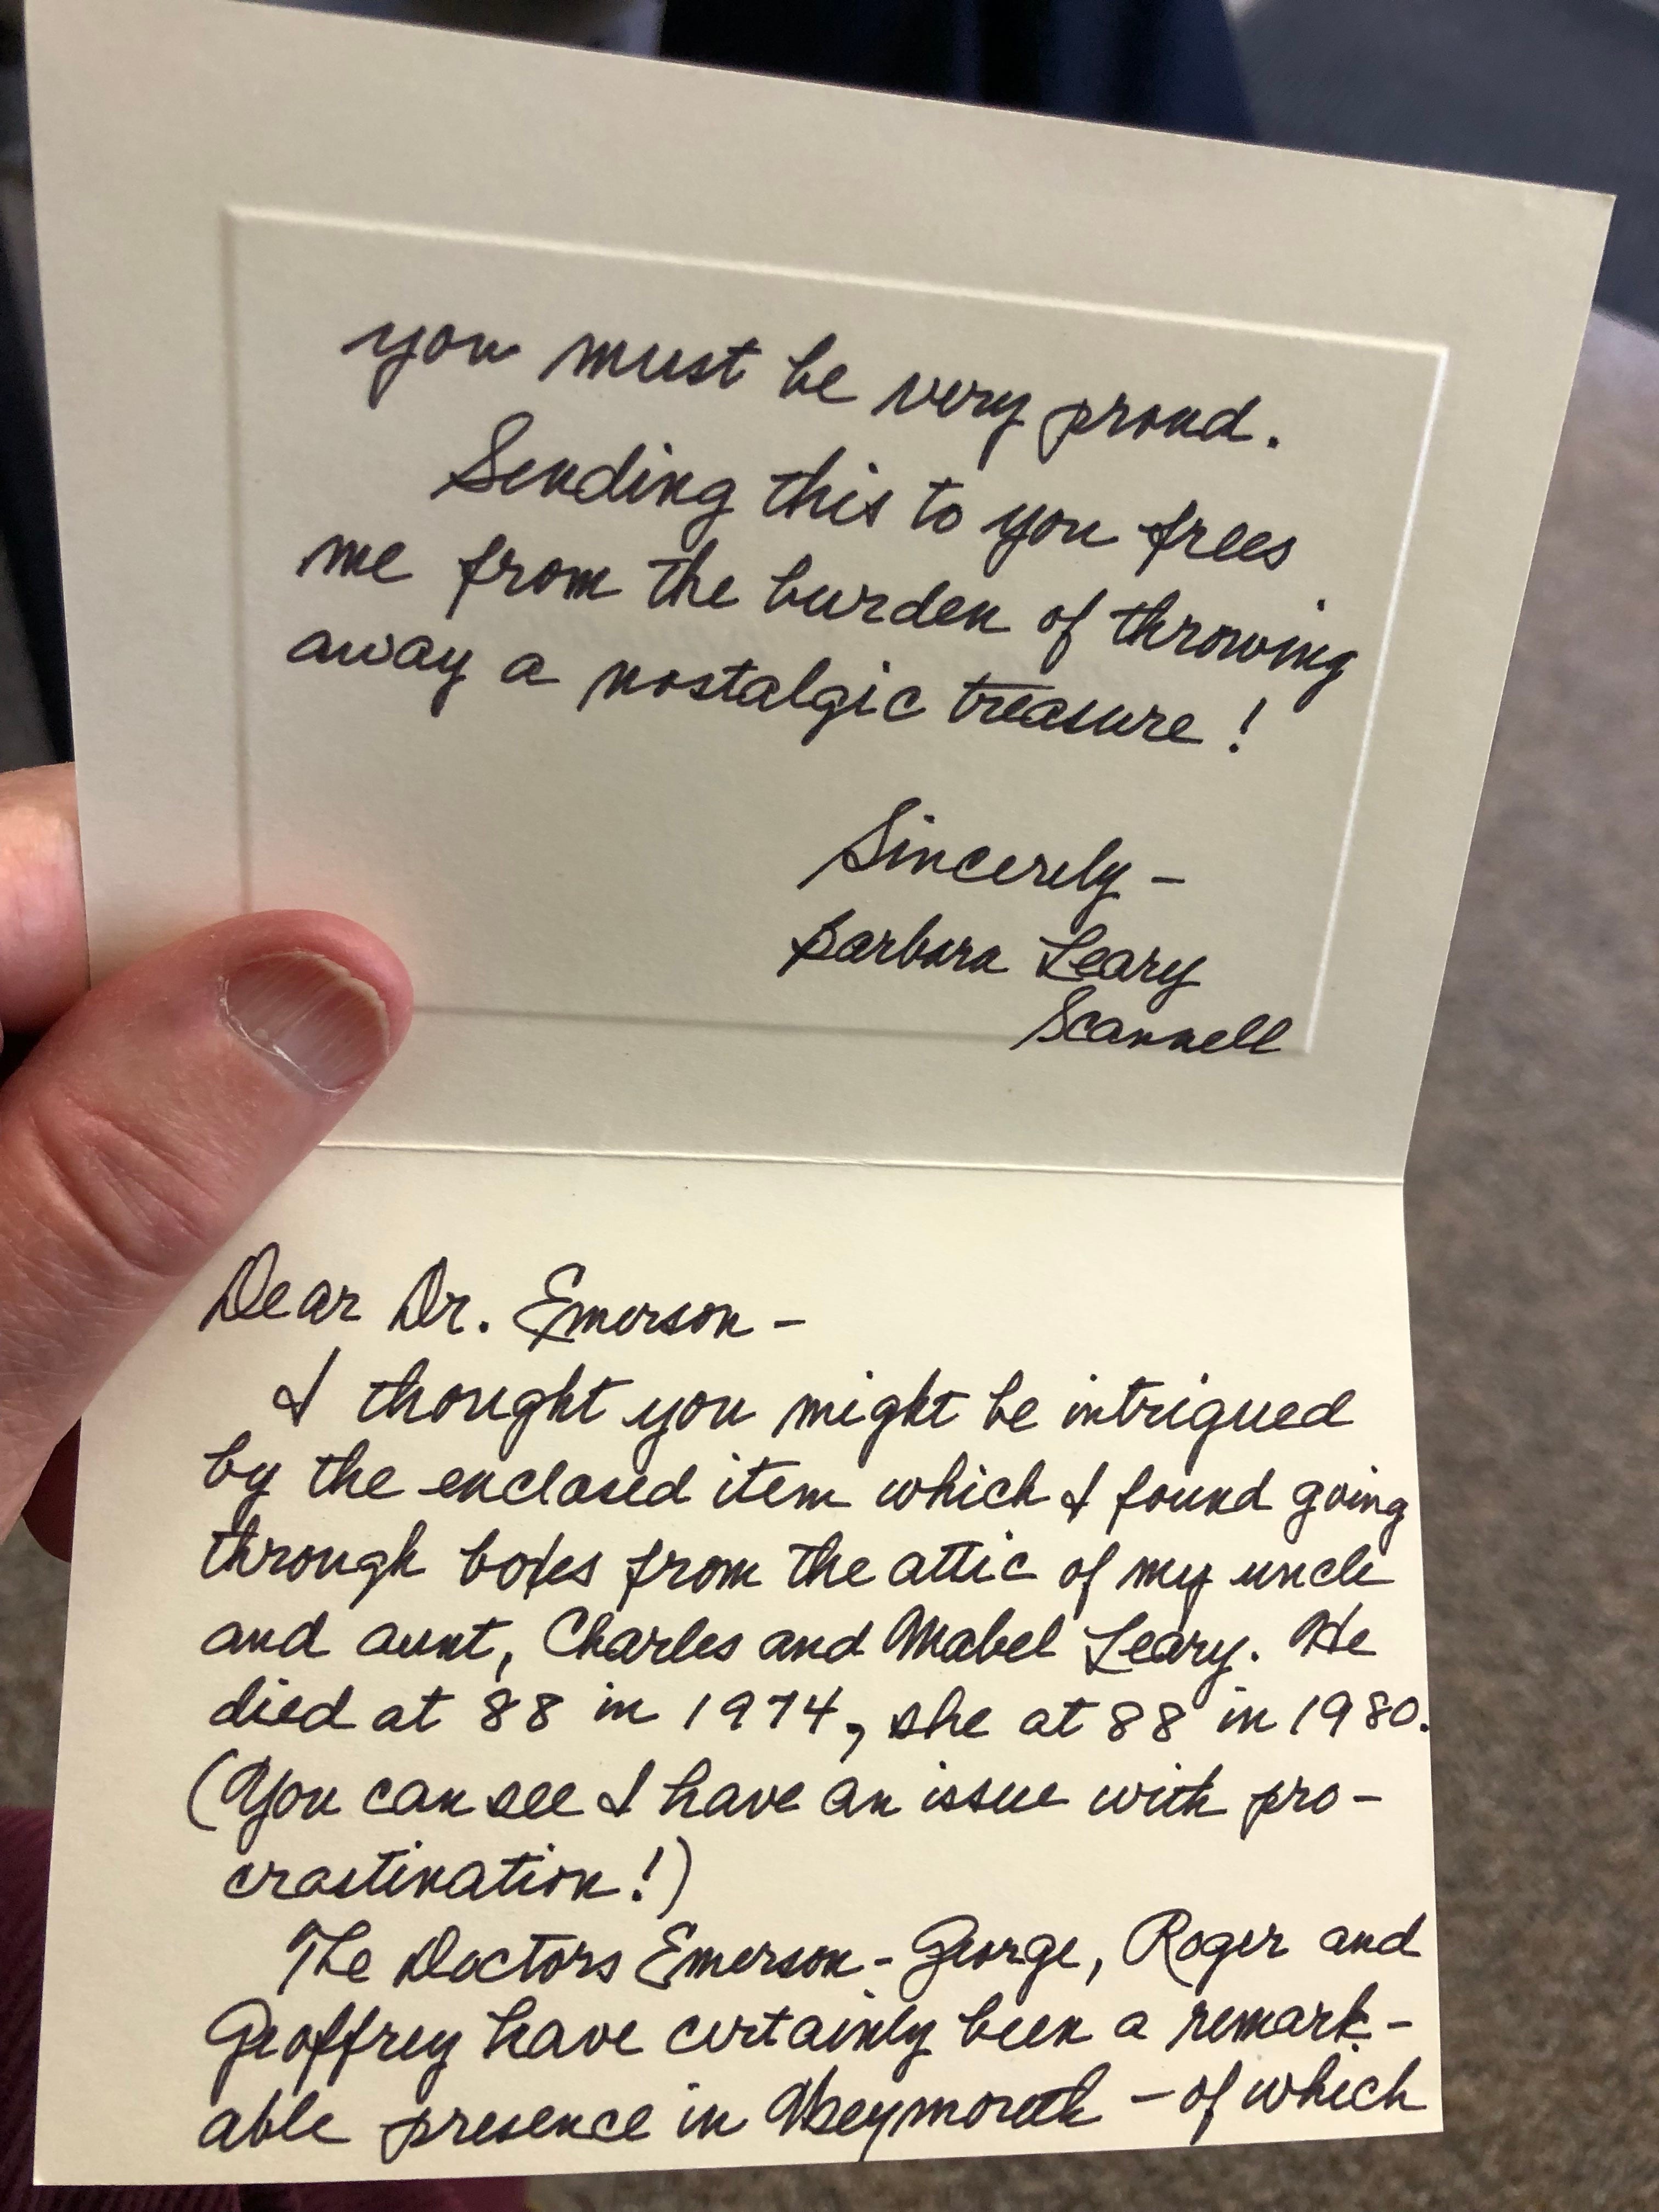 Dear Dr. Emerson -
I thought you might be intrigued
by the enclosed item which I found going
through boxes from the attic of my uncle
and aunt, Charles and Mabel Leary. He
died at 88 in 1974, she at 88 in 1980.
(You can see I have an issue with pro-
crastination!)
The Doctors Emerson - George, Roger and
Geoffrey have certainly been a remark-
able presence in Weymouth - of which
you must be very proud.
Sending this to you frees
me from the burden of throwing
away a nostalgic treasure!
Sincerely -
Barbara Leary
Scannell